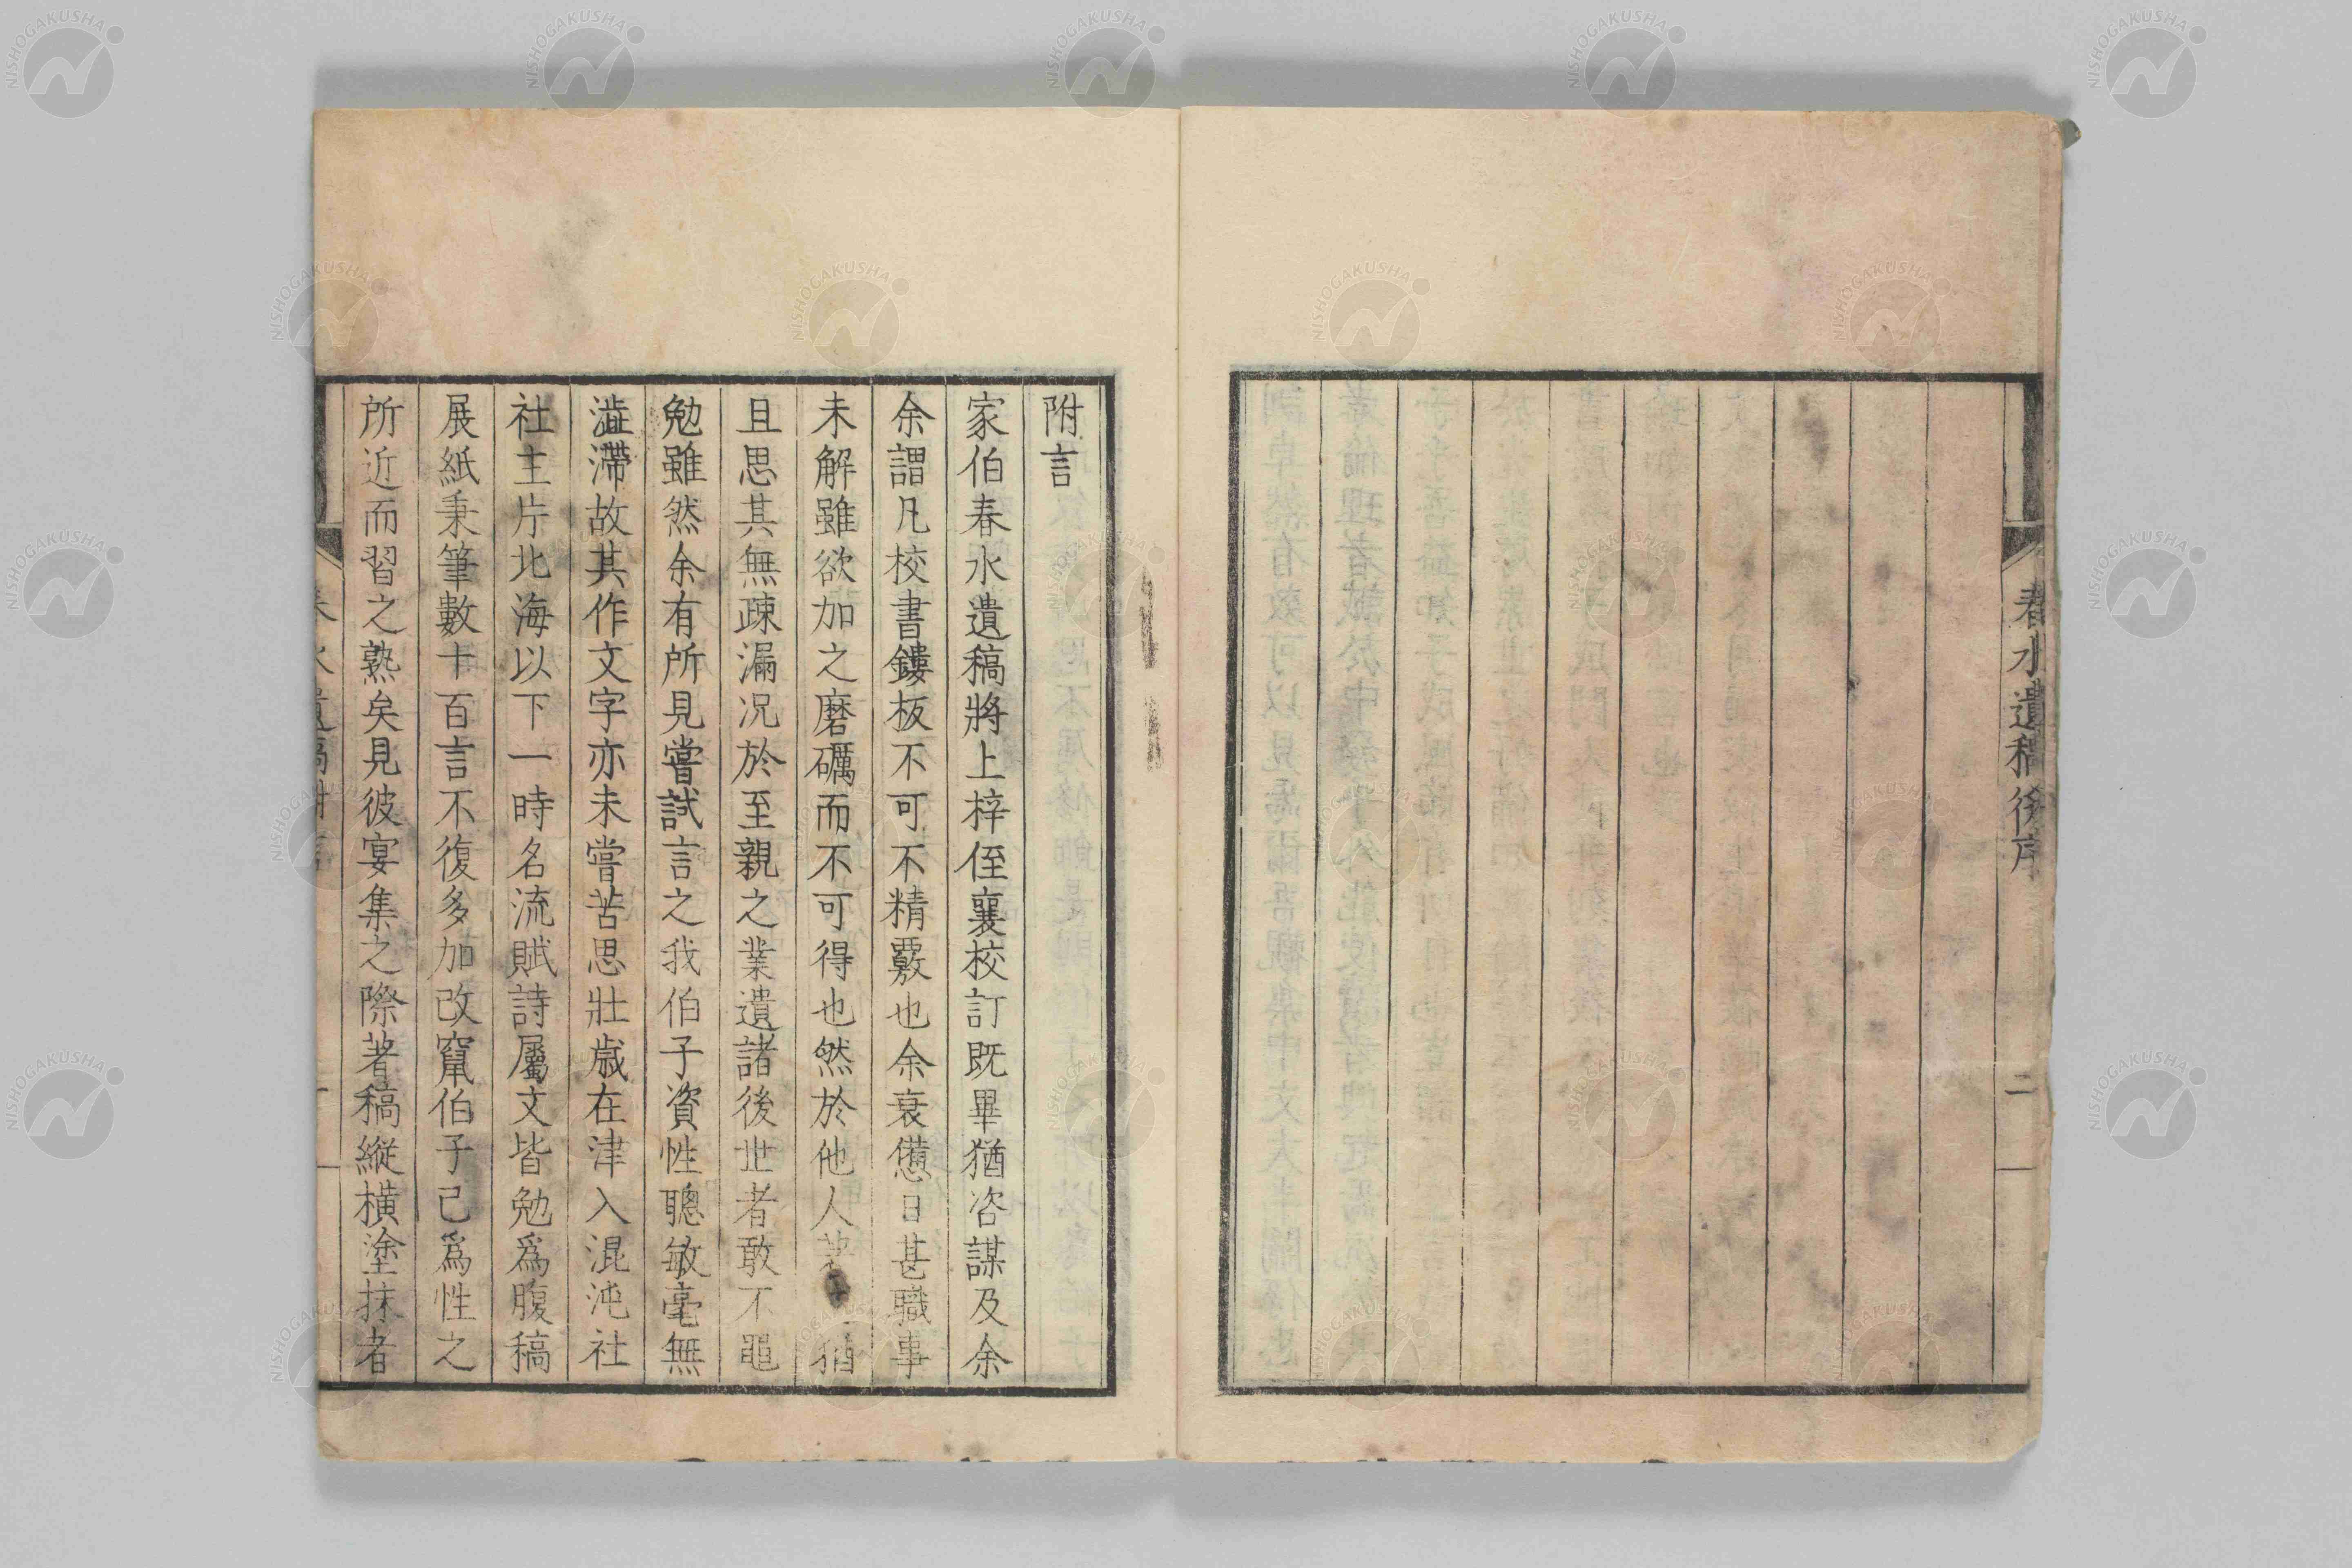 春水遺稿後序
二
附言
家伯春水遺稿將上梓侄襄校訂既畢猶咨謀及余
余謂凡校書鏤板不可不精覈也余衰憊日甚職事
未解雖欲加之磨礪而不可得也然於他人著猶
且思其無疎漏况於至親之業遺諸後世者敢不黽
勉雖然余有所見嘗試言之我伯子資性聰敏毫無
澁滯故其作文字亦未嘗苦思壯歳在津入混沌社
社主片北海以下一時名流賦詩屬文皆勉爲腹稿
展紙秉筆數十百言不復多加改竄伯子已爲性之
所近而習之熟矣見彼宴集之際著稿縱横塗抹者
春水遺稿附言
一
NISHOGAKUSHA